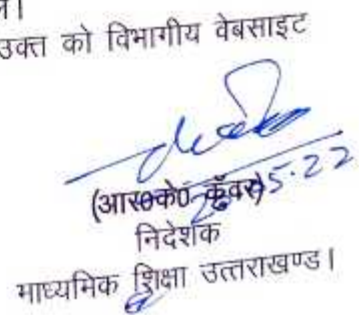 उक्त को विभागीय वेबसाइट
(आर०के० कुँवर)
निदेशक
माध्यमिक शिक्षा उत्तराखण्ड।